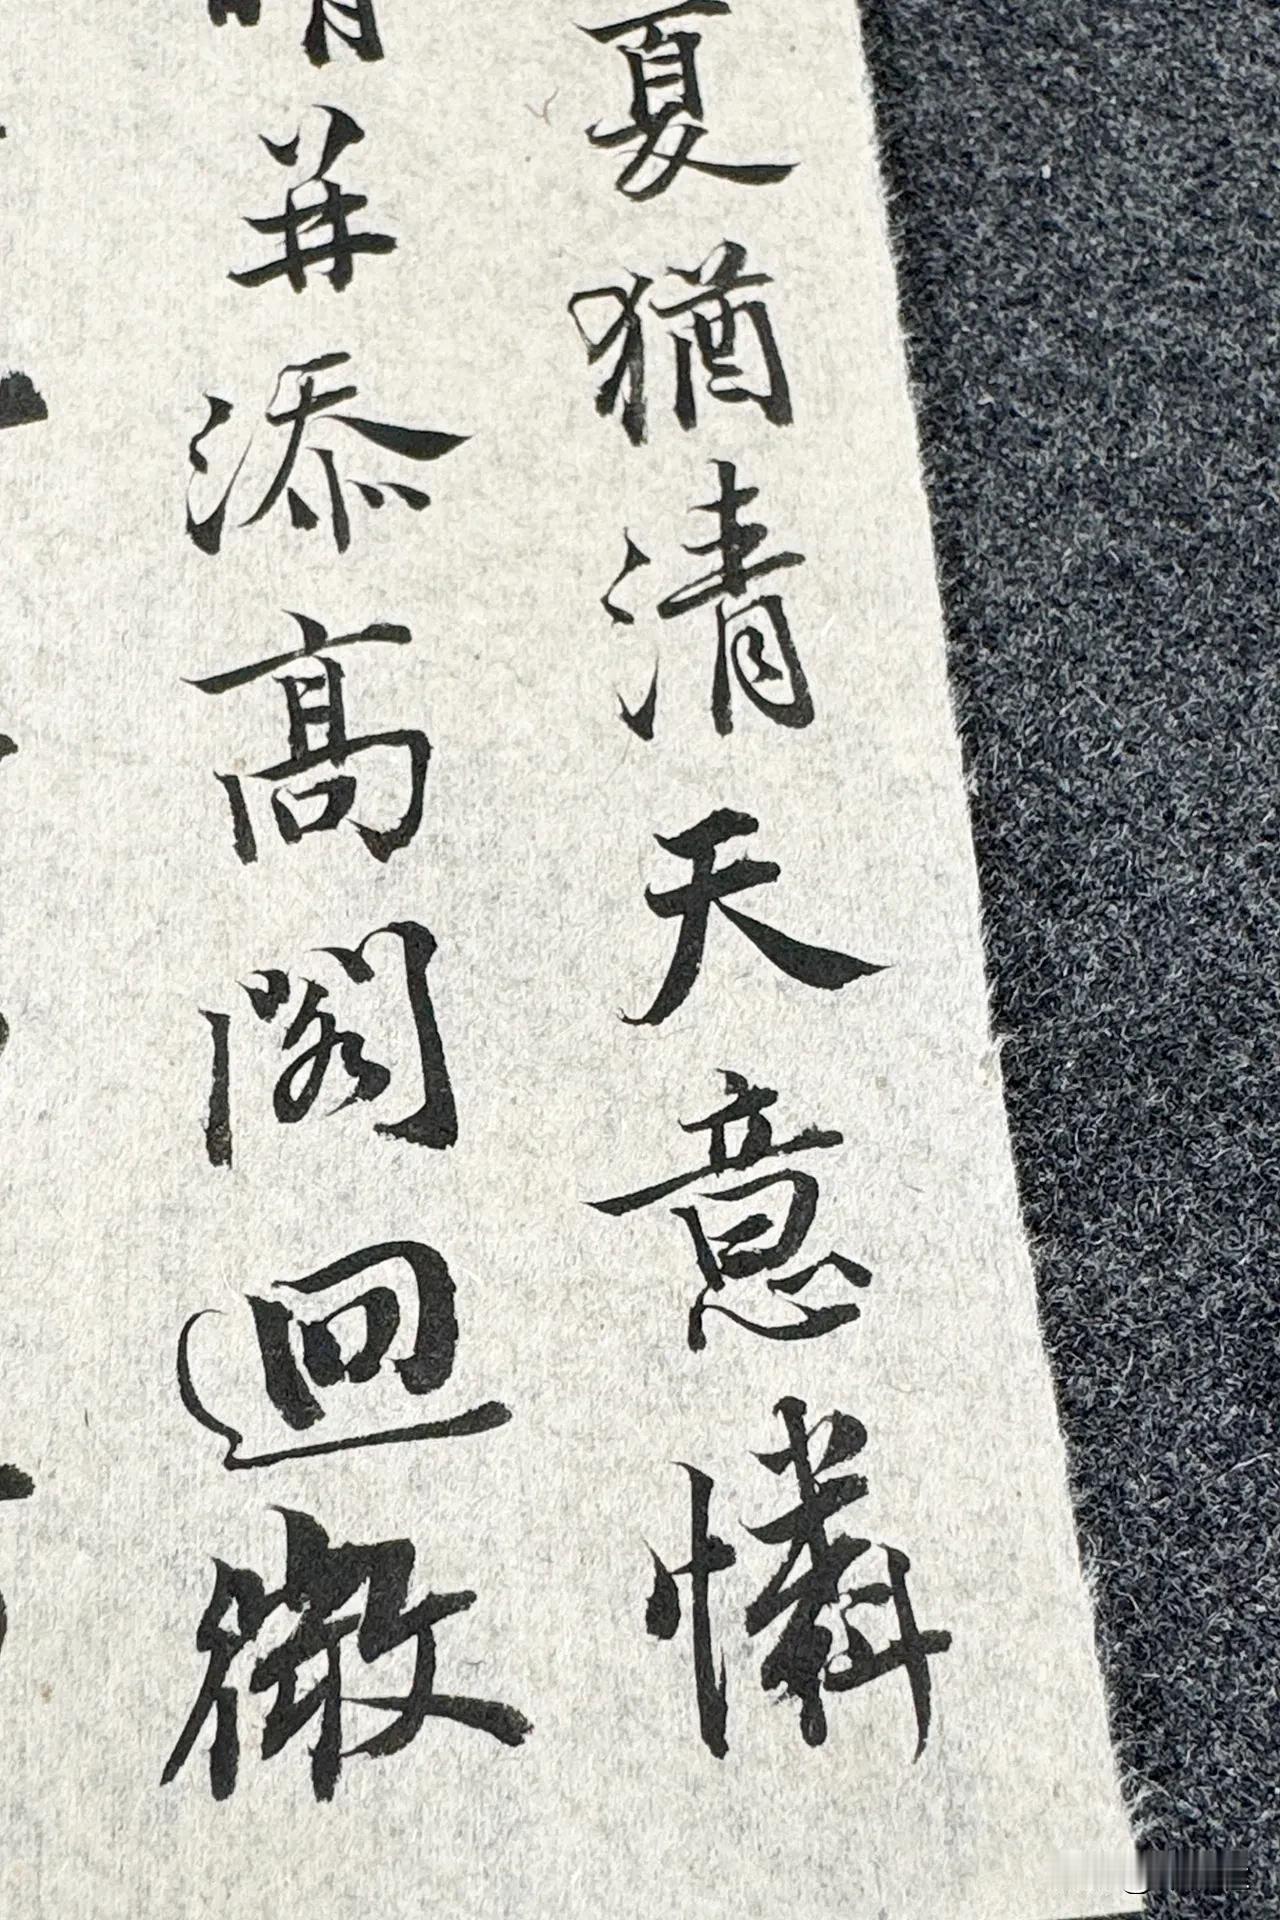 夏猶清天意憐
晴并添高閣迥微